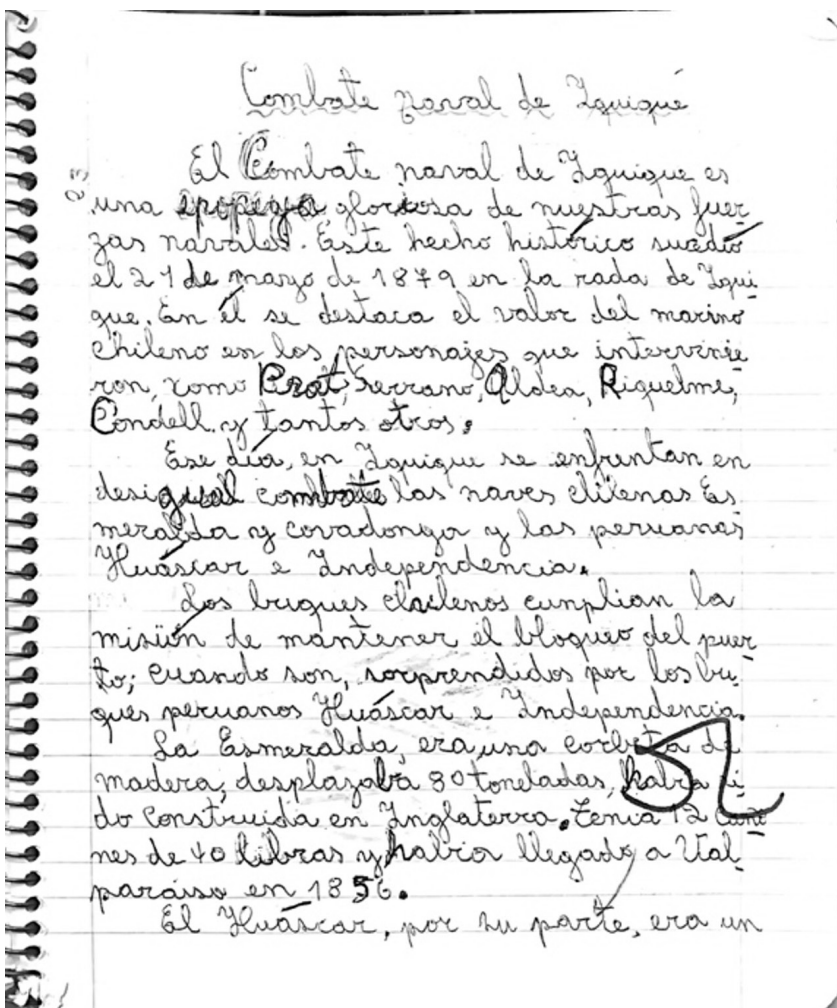 Combate naval de Iquique
El Combate naval de Iquique es
una epopeya gloriosa de nuestras fuer
zas navales. Este hecho histórico sucedió
el 21 de mayo de 1879 en la rada de Iqui
que. En él se destaca el valor del marino
Chileno en los personajes que intervinie
ron, como Prat, Serrano, Aldea, Riquelme,
Condell y tantos otros.
Ese día, en Iquique se enfrentan en
desigual combate las naves chilenas Es
meralda y covadonga y las peruanas
Huáscar e Independencia.
Los buques chilenos cunplian la
misión de mantener el bloqueo del puer
to; cuando son, sorprendidos por los bu
ques peruanos Huáscar e Independencia.
La Esmeralda, era una corbeta de
madera, desplazaba 80 toneladas, habia si
do construida en Inglaterra. Tenia 12 caño
nes de 40 libras y habia llegado a Val
paraiso en 1856.
El Huáscar, por su parte, era un